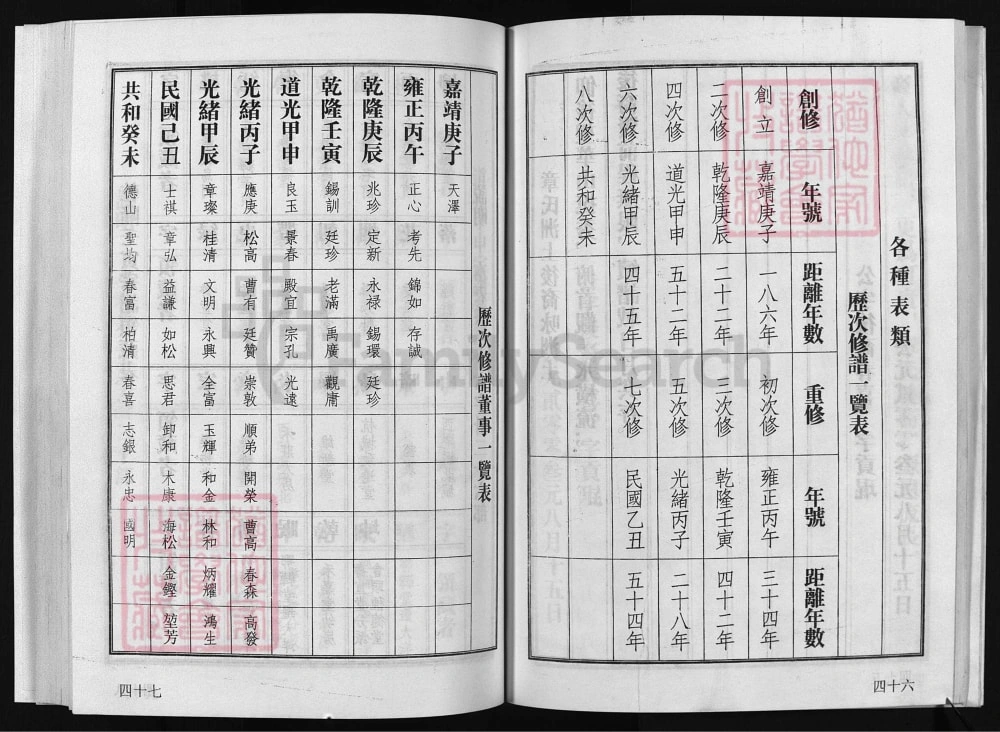 各種表類
歷次修譜一覽表
創修 年號 距離年數 重修 年號 距離年數
創立 嘉靖庚子 一八六年 初次修 雍正丙午年 三十四年
二次修 乾隆庚辰 二十二年 三次修 乾隆壬寅 四十二年
四次修 道光甲申 五十二年 五次修 光緒丙子 二十八年
六次修 光緒甲辰 四十五年 七次修 民國乙丑 五十四年
八次修 共和癸未
四十六
歷次修譜董事一覽表
嘉靖庚子 天澤
雍正丙午 正心 考先 錦如 存誠
乾隆庚辰 兆珍 定新 永祿 錫環 廷珍
乾隆壬寅 錫訓 廷珍 老滿 禹廣 觀庸
道光甲申 良玉 景春 殿宜 宗孔 光遠
光緒丙子 應庚 松高 曹有 廷贊 崇敦 順弟 開榮 曹高 春森 高發
光緒甲辰 章璨 桂清 文明 永興 全富 玉輝 和金 林和 炳耀 鴻生
民國己丑 士祺 章弘 益謙 如松 思君 卸和 木康 海松 金鏗 堃芳
共和癸未 德山 聖均 春富 柏清 春喜 志銀 永忠 國明
四十七
FamilySearch